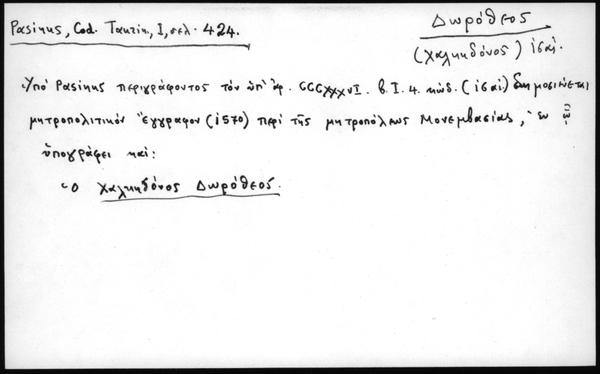 Pasinus, Cod. Taurin., I, σελ. 424.
Δωρόθεος
(Χαλκηδόνος) ιςαι.
Ὑπό Pasinus περιγράφοντος τόν ὑπ' ἀρ. CCCXXXVI. b. I. 4. κώδ. (ιςαι) δημοσιεύεται
μητροπολιτικόν ἔγγραφον (1570) περί τῆς μητροπόλεως Μονεμβασίας, ἐν ᾧ
ὑπογράφει καί:
Ὁ Χαλκηδόνος Δωρόθεος.